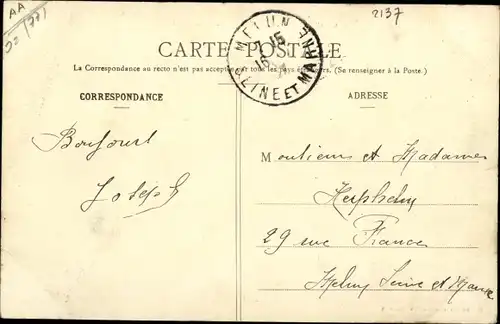 AA
2137
MELUN
SEINE ET MARNE
CARTE POSTALE
La Correspondance au recto n'est pas acceptée par tous les pays étrangers. (Se renseigner à la Poste.)
CORRESPONDANCE
ADRESSE
Bonjour
Joseph
Monsieur et Madame
29 rue France
Melun Seine et Marne